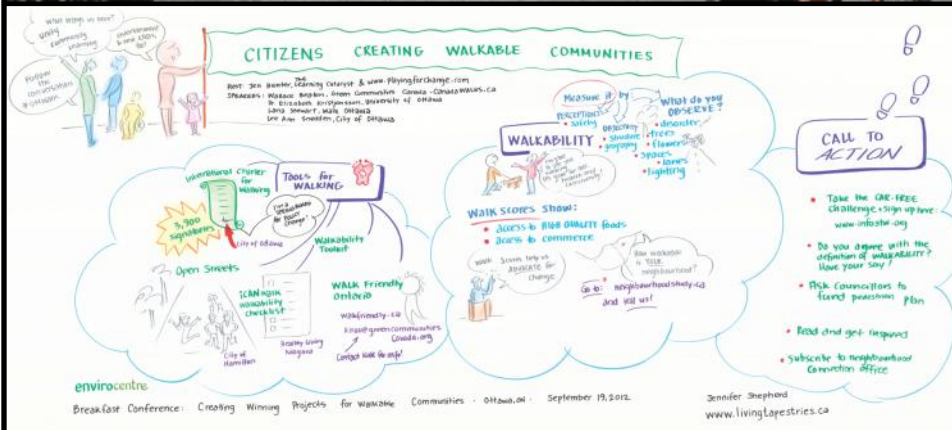 What brings us here?
unity
community
learning
Follow
the
conversation
CITIZENS CREATING WALKABLE COMMUNITIES
Host: Jen Hunter, The Learning Catalyst & www.playingforchange.com
Speakers: Wallace Beaton, Green Communities Canada - CanadaWalks.ca
Dr. Elizabeth Kristjansson, University of Ottawa
Stewart, Walk Ottawa
Lee Ann Snedden, City of Ottawa
International Charter
for
Walking
5,300
signatories
City of Ottawa
TOOLS for
WALKING
I'm a
for policy
change!
Walkability
Toolkit
Open Streets
City of
Hamilton
iCANWALK
walkability
checklist
Healthy Living
Niagara
WALK Friendly
Ontario
walkfriendly.ca
kate@greencommunities
canada.org
Contact Kate for info!
WALKABILITY
Measure it by
PERCEPTION
• safety
OBJECTIVITY
• structure
• geography
What do you
OBSERVE?
• disorder
• trees
• flowers
• spaces
• lanes
• lighting
Walk Scores show:
• access to HIGH QUALITY foods
• access to commerce
Walk Scores help us
ADVOCATE for
change
How walkable
is YOUR
neighbourhood?
Go to: neighbourhoodstudy.ca
and tell us!
CALL TO
ACTION
• Take the CAR-FREE
challenge + sign up here:
• Do you agree with the
definition of WALKABILITY?
Have your say!
• Ask Councillors to
fund pedestrian plan
• Read and get inspired
• Subscribe to neighbourhood
Connection office
envirocentre
Breakfast Conference: Creating Winning Projects for Walkable Communities · Ottawa, ON · September 19, 2012
Jennifer Shepherd
www.livingtapestries.ca